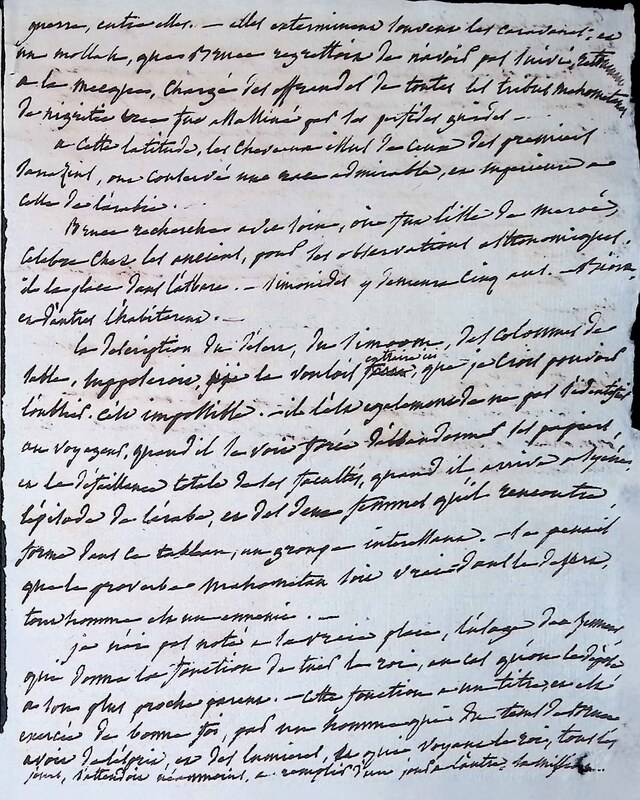 guerre, entre elles. — elles exterminent souvent les caravanes; et
un mollah, que Bruce regrettoit de n'avoir pas suivi, retournant
a la mecque, chargé des offrandes de toutes les tribus mahometanes
de nigritie fut assassiné par les perfides guides —
a cette latitude, les chevaux issus de ceux des premiers
sarrazins, ont conservé une race admirable, et superieure a
celle de l'arabie. —
Bruce rechercha avec soin, où fut l'isle de meroë,
celebre chez les anciens, pour les observations astronomiques.
il la place dans l'atbara. — simonides y demeura cinq ans. —
et d'autres l'habiterent. —
la description du desert, du simoom, des colonnes de
sable, supposeroit, si je la voulois extraire ici, que je crois pouvoir
l'oublier. cela impossible. — il l'est egalement de ne pas s'identifier
au voyageur, quand il se voit forcé d'abandonner ses papiers
et la défaillance totale de ses facultés, quand il arrive a syene,
l'episode de l'arabe, et des deux femmes qu'il rencontre
forme dans ce tableau, un groupe interessant. — je pensois
que le proverbe mahometan soit vrai dans le desert,
tout homme est un ennemi. —
je n'ai pas noté a la vraie place, l'usage des
que donne la fonction de tuer le roi, au cas qu'on le
a son plus proche parent. — cette fonction a un titre, et est
exercée de bonne foi, par un homme qui du tems de Bruce
avoit de l'esprit, et des lumieres, qui voyant le roi, tous les
jours, s'attendoit néanmoins, a remplir d'un jour a l'autre